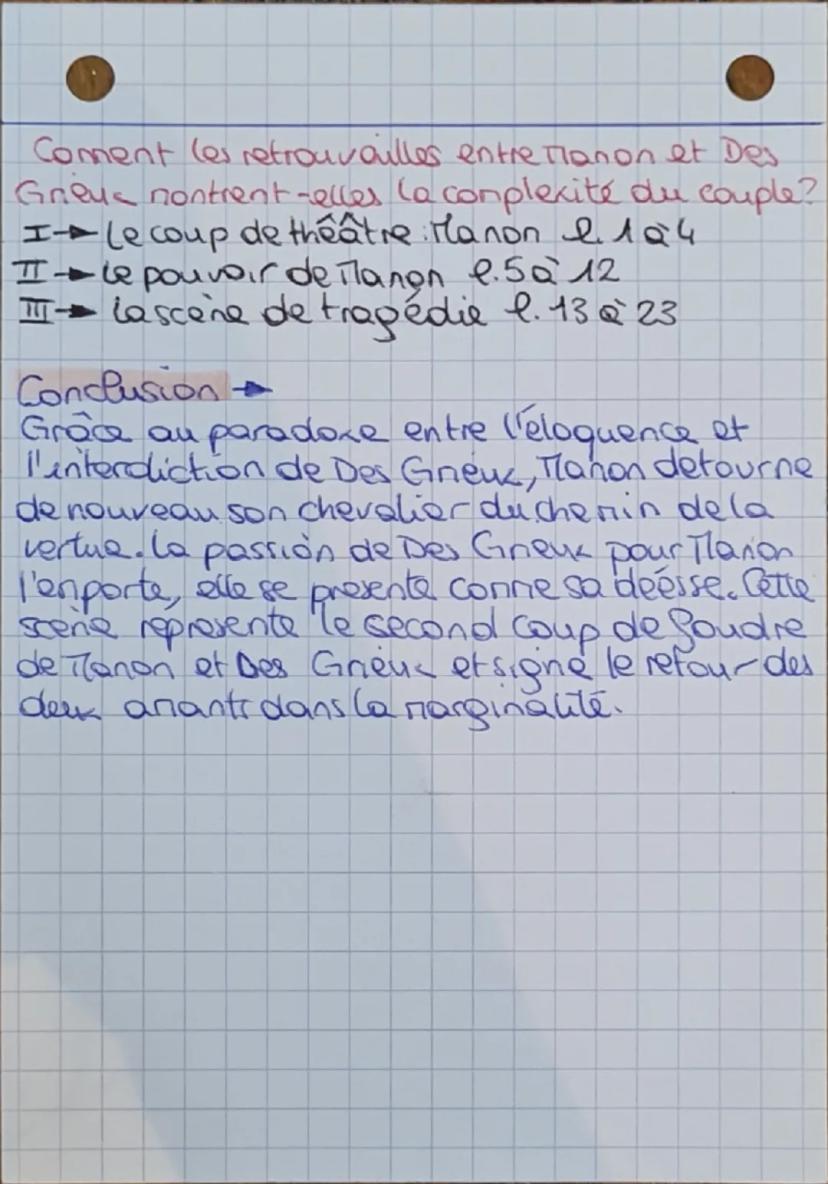 Comment les retrouvailles entre Manon et Des
Grieux montrent-elles la complexité du couple?
I → Le coup de théâtre : Manon l. 1 à 4
II → Le pouvoir de Manon l. 5 à 12
III → La scène de tragédie l. 13 à 23
Conclusion →
Grâce au paradoxe entre l'éloquence et
l'interdiction de Des Grieux, Manon détourne
de nouveau son chevalier du chemin de la
vertue. La passion de Des Grieux pour Manon
l'emporte, elle se présente comme sa déesse. Cette
scène représente le second coup de foudre
de Manon et Des Grieux et signe le retour des
deux amants dans la marginalité.